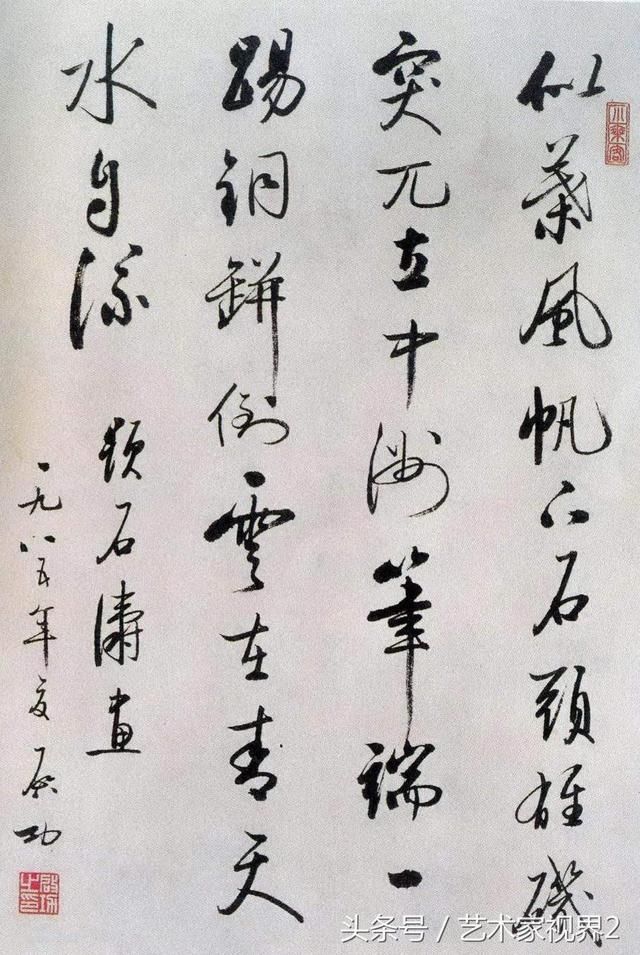 似葉風帆下石頭雄磯
突兀立中洲筆端一
踢銅缾倒雲在青天
水自流
題石濤畫
一九八五年夏 启功
头条号／艺术家视界2